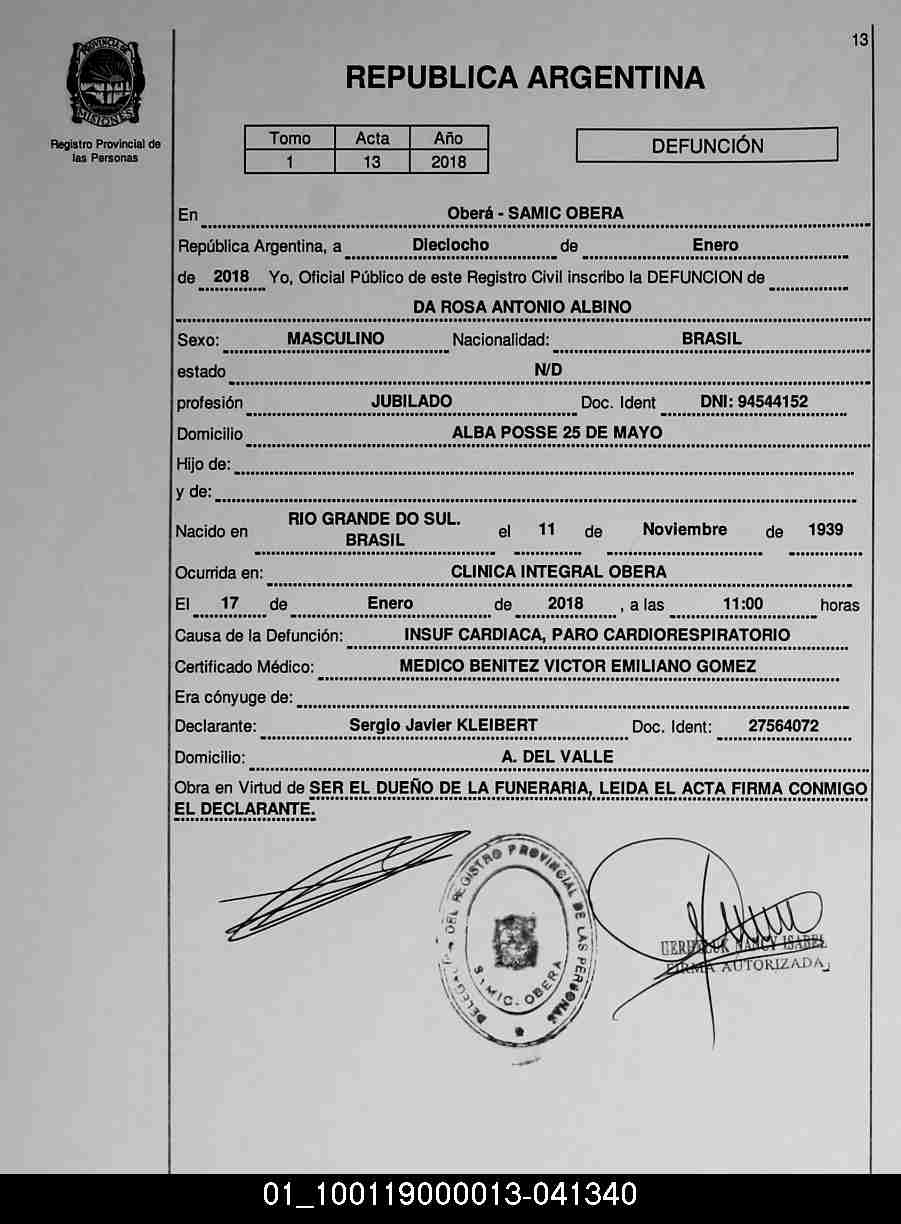 13
PROVINCIA DE
MISIONES
Registro Provincial de
las Personas
REPUBLICA ARGENTINA
Tomo Acta Año
1 13 2018
DEFUNCIÓN
En Oberá - SAMIC OBERA
República Argentina, a Dieciocho de Enero
de 2018 Yo, Oficial Público de este Registro Civil inscribo la DEFUNCION de
DA ROSA ANTONIO ALBINO
Sexo: MASCULINO Nacionalidad: BRASIL
estado N/D
profesión JUBILADO Doc. Ident DNI: 94544152
Domicilio ALBA POSSE 25 DE MAYO
Hijo de:
y de:
Nacido en RIO GRANDE DO SUL. BRASIL el 11 de Noviembre de 1939
Ocurrida en: CLINICA INTEGRAL OBERA
El 17 de Enero de 2018 , a las 11:00 horas
Causa de la Defunción: INSUF CARDIACA, PARO CARDIORESPIRATORIO
Certificado Médico: MEDICO BENITEZ VICTOR EMILIANO GOMEZ
Era cónyuge de:
Declarante: Sergio Javier KLEIBERT Doc. Ident: 27564072
Domicilio: A. DEL VALLE
Obra en Virtud de SER EL DUEÑO DE LA FUNERARIA, LEIDA EL ACTA FIRMA CONMIGO
EL DECLARANTE.
DEL REGISTRO PROVINCIAL DE LAS PERSONAS
SAMIC. OBERA
NANCY ISABEL
FIRMA AUTORIZADA
01_100119000013-041340